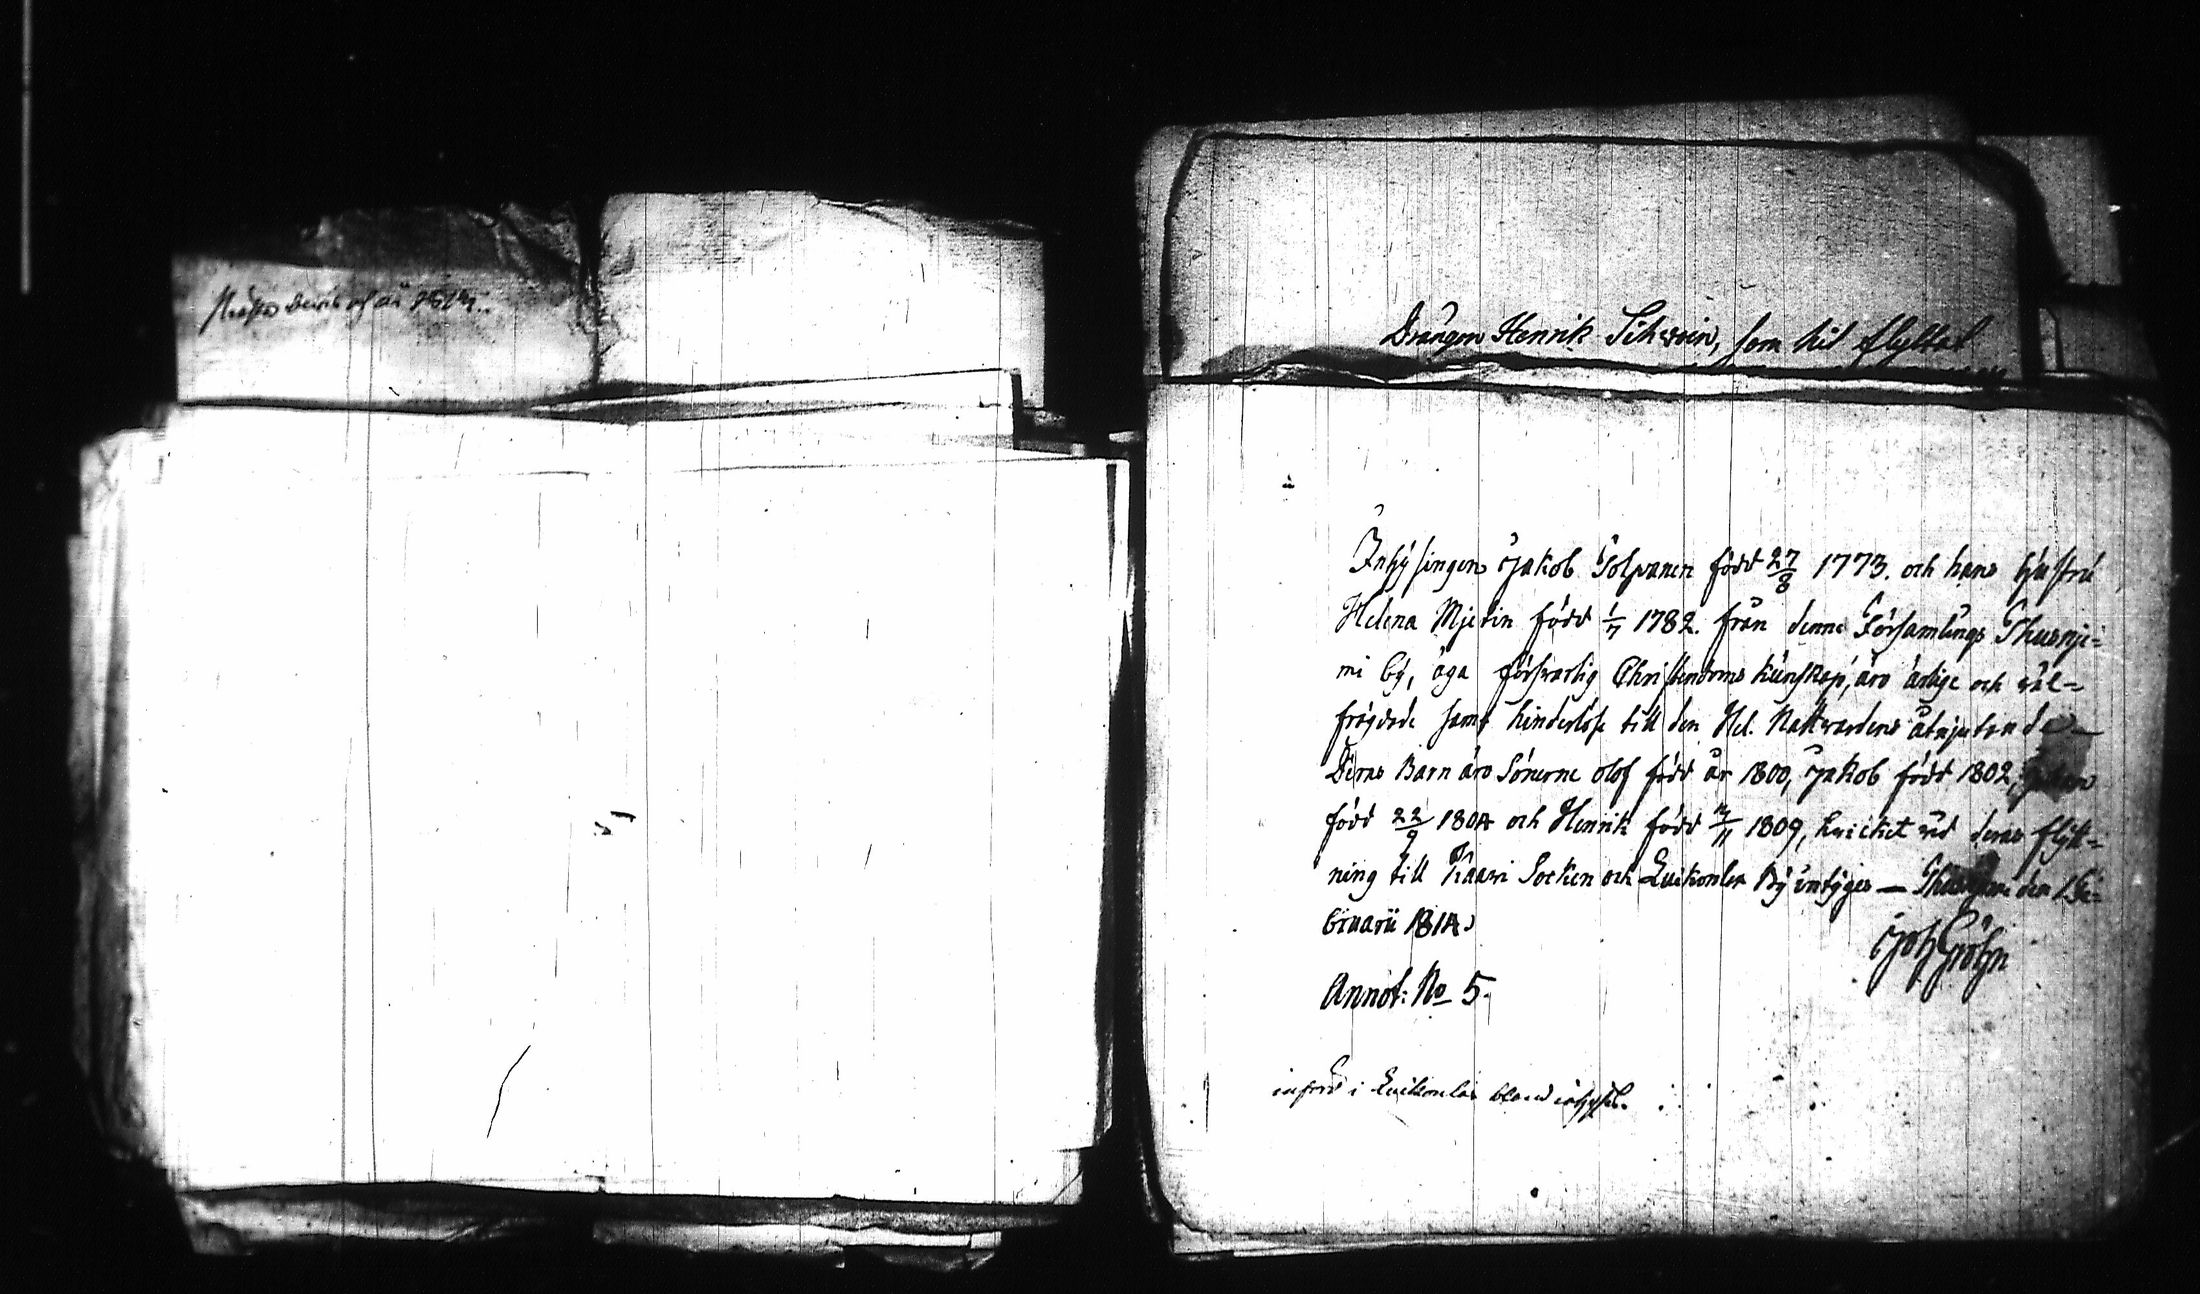 Drängen Henrik Sihvoin, som hit flyttat
Inhysingen Jakob Tolvanen född 27/8 1773. och hans hustru
Helena Mjetin född 1/7 1782. från denne Församlings Thusnje-
mi by, äga försvarlig Christendoms kunskap, äro ärlige och väl-
frägdade samt hinderlöse till den Hel. Nattvardens åtnjutande –
Deras Barn äro Sönerne Olof född år 1800, Jakob född 1802, Johan
född 22/9 1804 och Henrik född 2/11 1809, hvicket vid deras flytt-
ning till Kaavi Socken och Luikonlax By intygas — den 1 Fe-
bruarii 1814.
Joh Gröhn
Annot: No 5.
införd i Luikonlax bland inhyses.